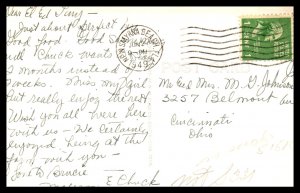 Dear El & Day -
Just about perfect -
Good food. Good
with Chuck wants
2 months instead of
2 weeks. Miss my girl
but really enjoy the rest
Wish you all were here
with us - We certainly
enjoyed being at the
farm with you -
Love to Brucie
E Chuck
NEW SMYRNA BEACH, FLA.
9 - PM
1949
Mr and Mrs. M. G. Johnson
3257 Belmont
Cincinnati
Ohio